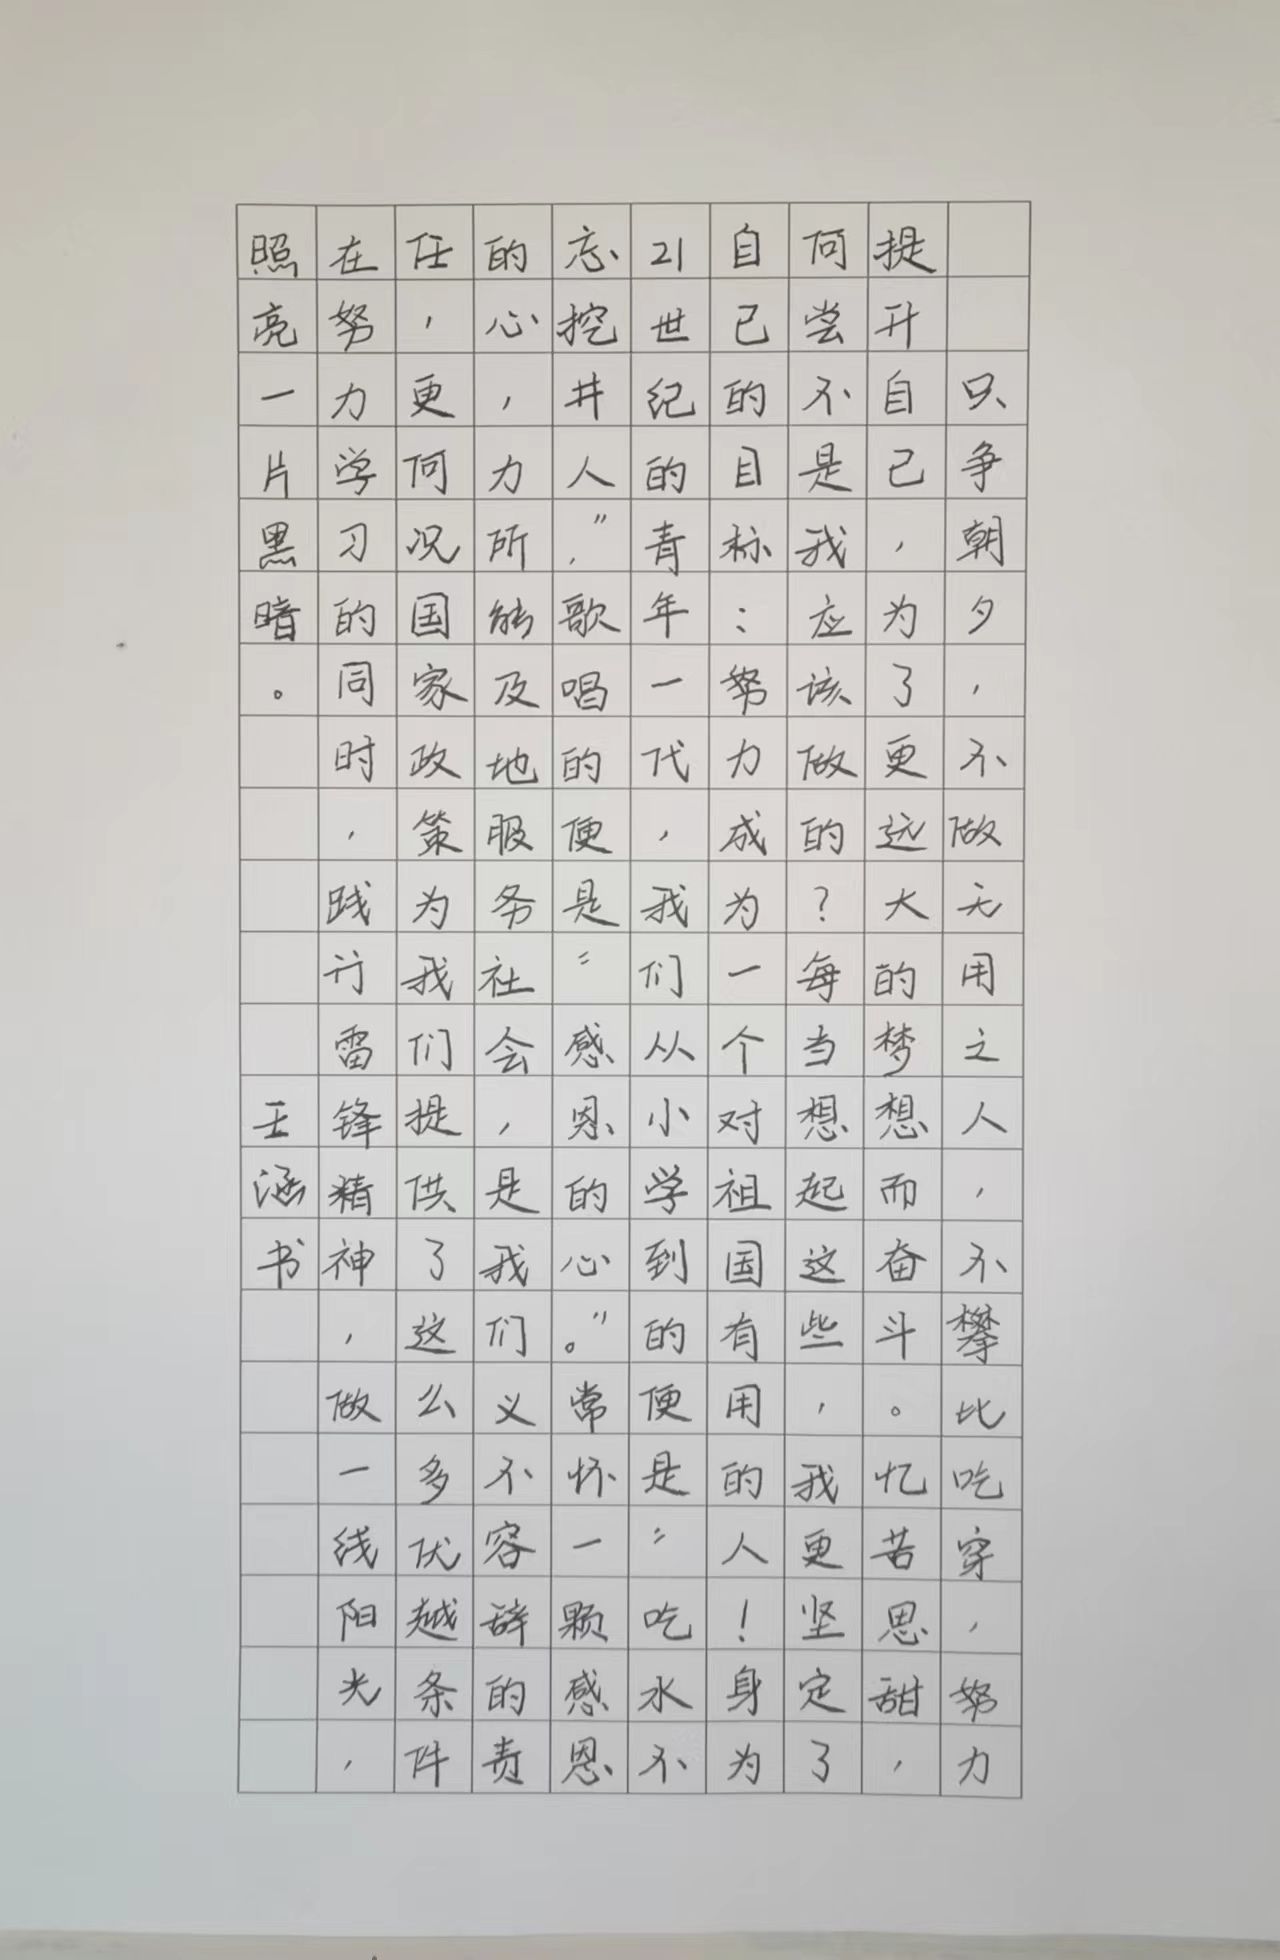 只争朝夕，不做无用之人，不攀比吃穿，努力
提升自己，为了更远大的梦想而奋斗。忆苦思甜，
何尝不是我应该做的？每当想起这些，我更坚定了
自己的目标：努力成为一个对祖国有用的人！身为
21世纪的青年一代，我们从小学到的便是“吃水不
忘挖井人，”歌唱的便是“感恩的心。”常怀一颗感恩
的心，力所能及地服务社会，是我们义不容辞的责
任，更何况国家政策为我们提供了这么多优越条件
在努力学习的同时，践行雷锋精神，做一线阳光，
照亮一片黑暗。王涵书